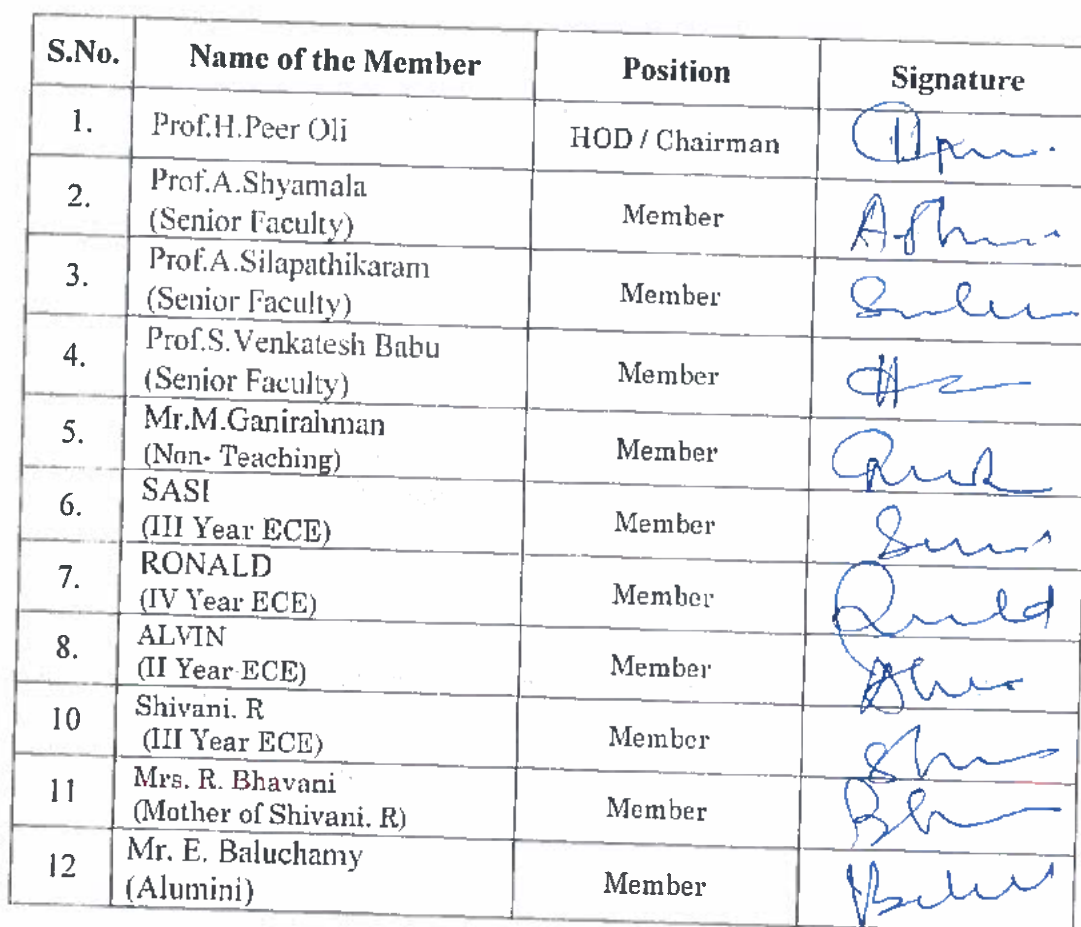 S.No. Name of the Member Position Signature
1. Prof.H.Peer Oli HOD / Chairman
2. Prof.A.Shyamala
(Senior Faculty) Member
3. Prof.A.Silapathikaram
(Senior Faculty) Member
4. Prof.S.Venkatesh Babu
(Senior Faculty) Member
5. Mr.M.Ganirahman
(Non- Teaching) Member
6. SASI
(III Year ECE) Member
7. RONALD
(IV Year ECE) Member
8. ALVIN
(II Year ECE) Member
10 Shivani. R
(III Year ECE) Member
11 Mrs. R. Bhavani
(Mother of Shivani. R) Member
12 Mr. E. Baluchamy
(Alumini) Member